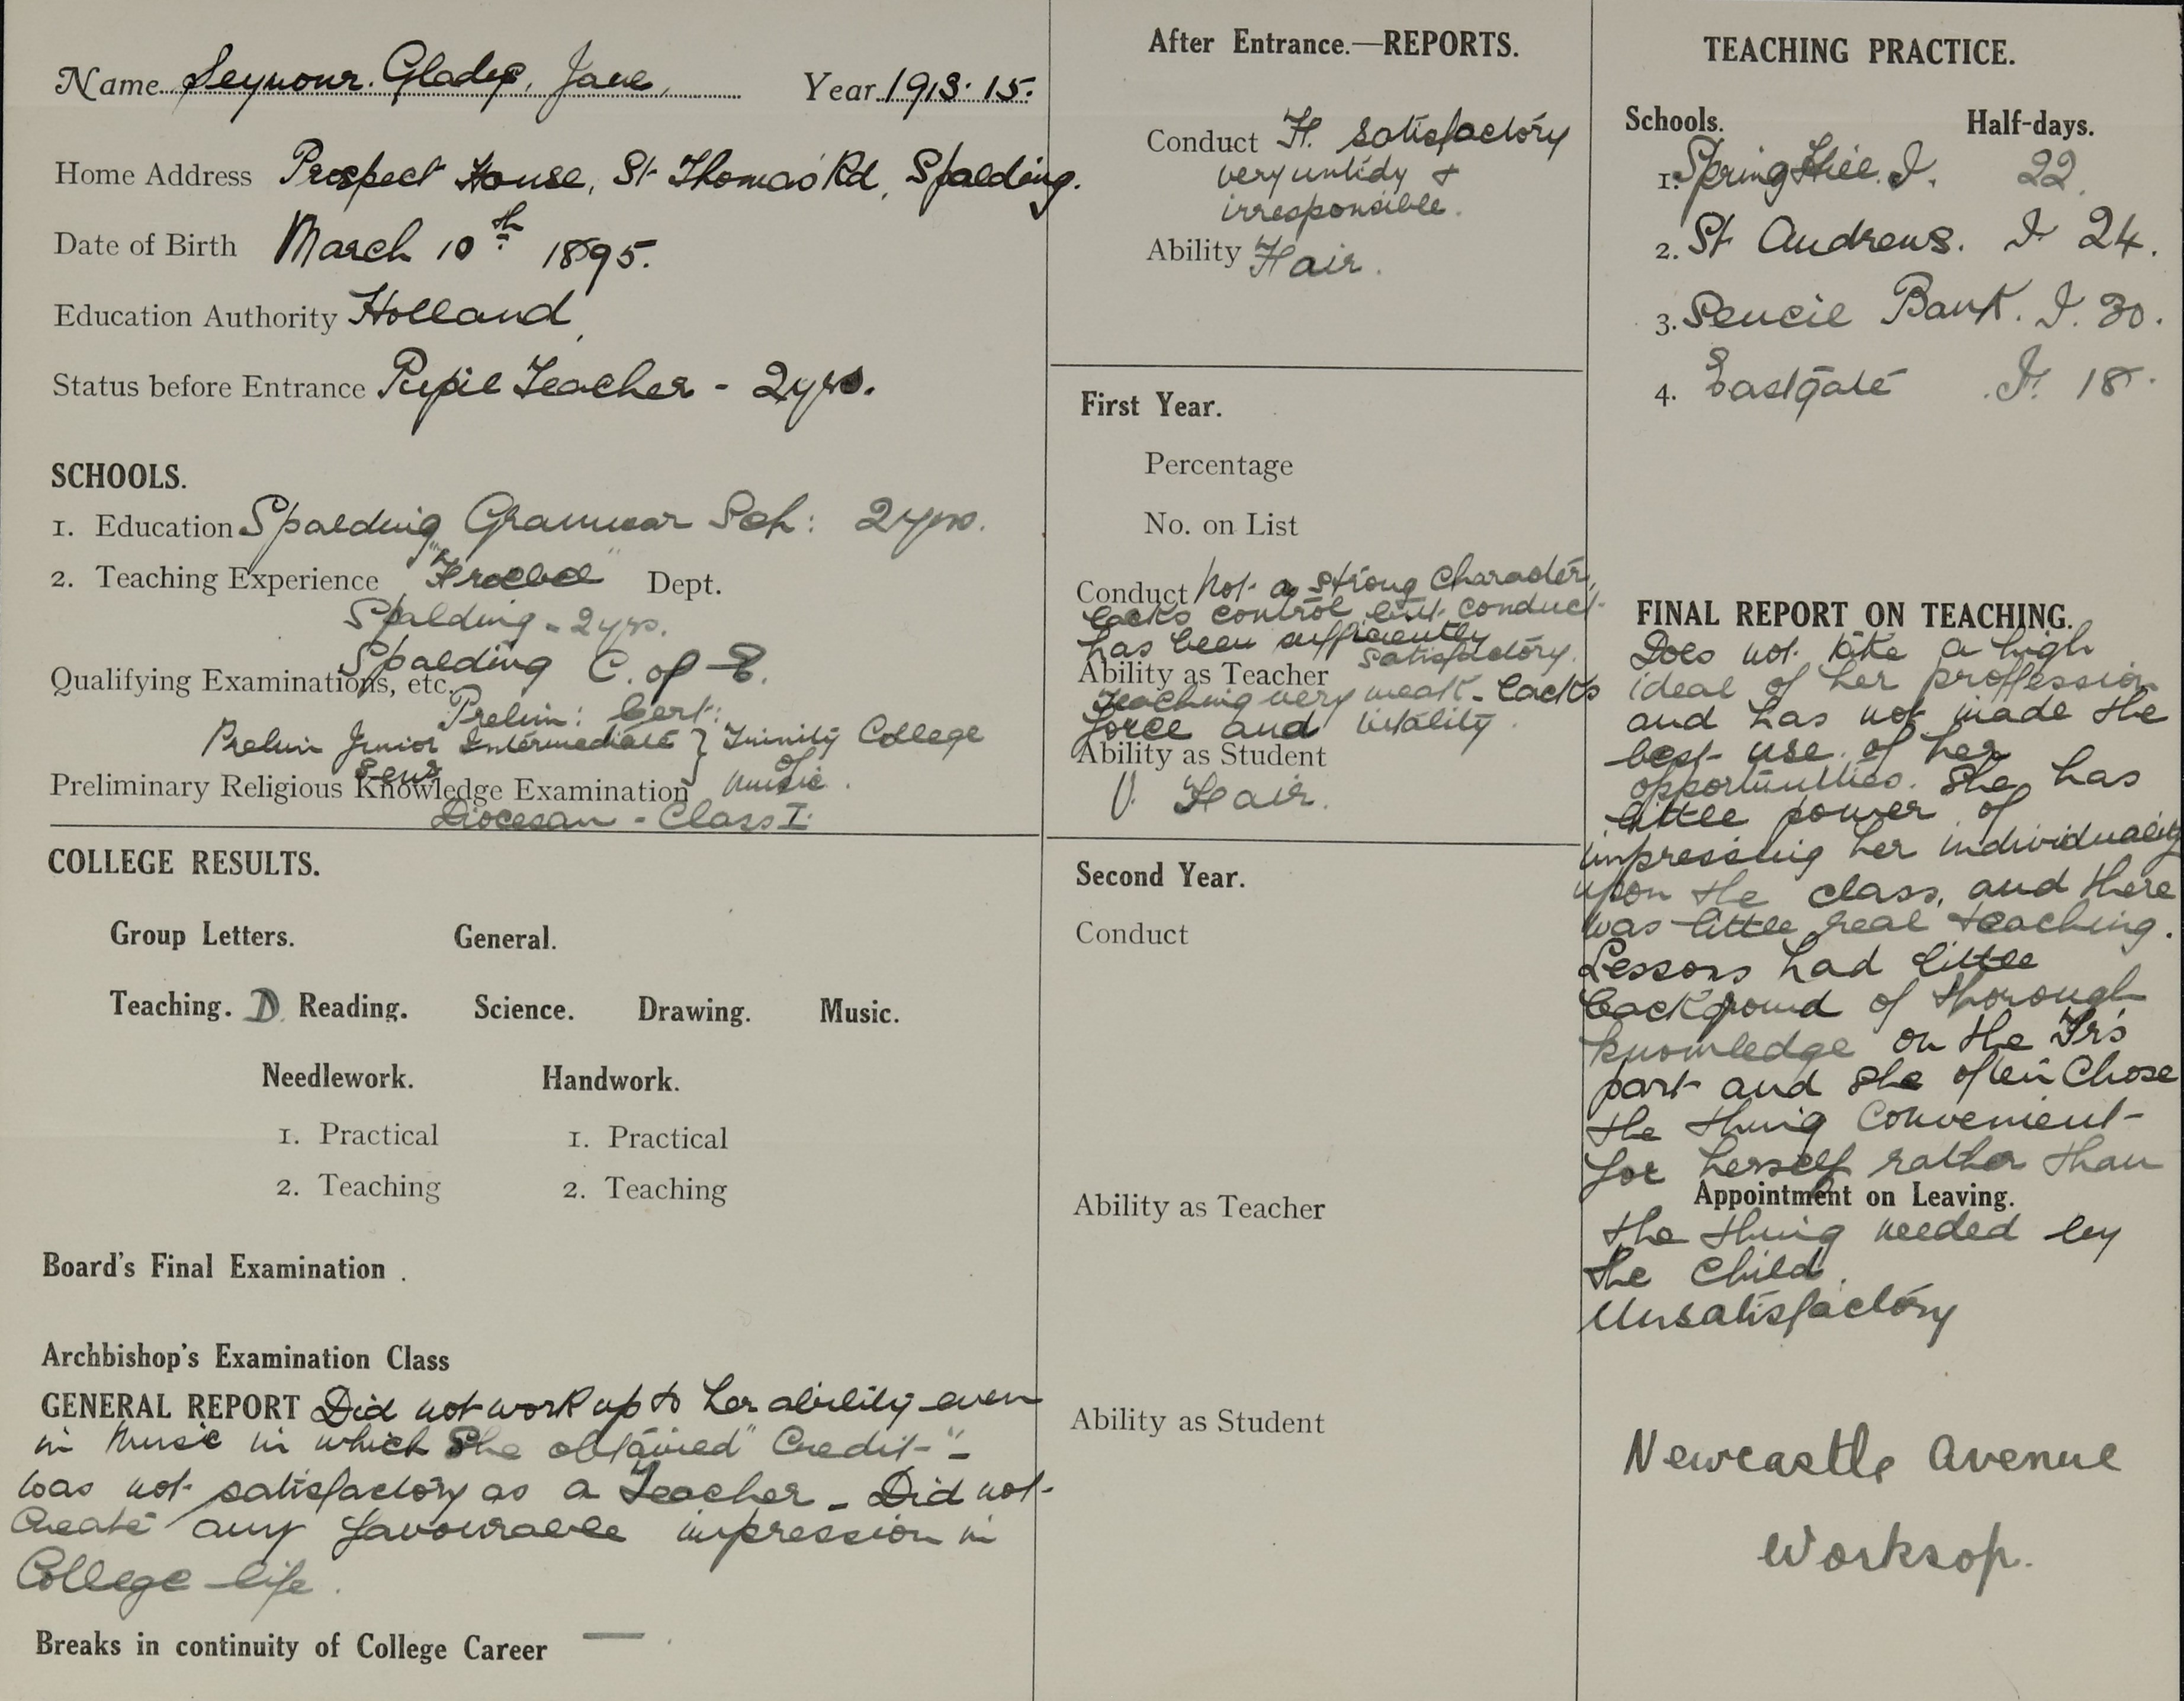 Name Seymour. Gladys, Jane, Year 1913. 15.
Home Address Prospect House, St Thomas' Rd, Spalding.
Date of Birth March 10th 1895.
Education Authority Holland
Status before Entrance Pupil Teacher - 2 yrs.
SCHOOLS.
1. Education Spalding Grammar Sch: 2 yrs.
2. Teaching Experience "Froebel" Dept.
Spalding - 2 yrs.
Spalding C. of E.
Qualifying Examinations, etc.
Prelim: Cert:
Prelim Junior Intermediate } Trinity College
Senr of
Preliminary Religious Knowledge Examination Music.
Diocesan - Class I.
COLLEGE RESULTS.
Group Letters. General.
Teaching. D Reading. Science. Drawing. Music.
Needlework. Handwork.
1. Practical 1. Practical
2. Teaching 2. Teaching
Board's Final Examination .
Archbishop's Examination Class
GENERAL REPORT Did not work up to her ability even
in Music in which she obtained "Credit" -
was not satisfactory as a Teacher - Did not
create any favourable impression in
College life.
Breaks in continuity of College Career —
After Entrance.—REPORTS.
Conduct F. satisfactory
very untidy +
irresponsible.
Ability Fair.
First Year.
Percentage
No. on List
Conduct Not a strong character,
lacks control but conduct
has been sufficiently
satisfactory.
Ability as Teacher
Teaching very weak - lacks
force and vitality.
Ability as Student
V. Fair.
Second Year.
Conduct
Ability as Teacher
Ability as Student
TEACHING PRACTICE.
Schools. Half-days.
1. Spring Hill. I. 22.
2. St Andrews. I 24.
3. Sencil Bank. I. 30.
4. Eastgate I. 18.
FINAL REPORT ON TEACHING.
Does not take a high
ideal of her proffession
and has not made the
best use of her
opportunities. She has
little power of
impressing her individuality
upon the class, and there
was little real teaching.
Lessons had little
background of thorough
knowledge on the Tr's
part and she often chose
the thing convenient
for herself rather than
Appointment on Leaving.
the thing needed by
the child.
Unsatisfactory
Newcastle Avenue
Worksop.